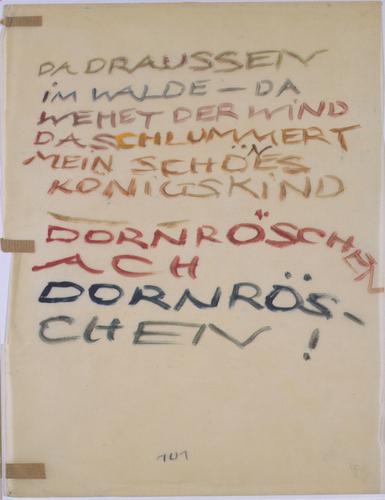 DA DRAUSSEN
IM WALDE – DA
WEHET DER WIND
DA SCHLUMMERT
MEIN SCHÖNES
KONIGSKIND
DORNRÖSCHEN
ACH
DORNRÖS-
CHEN !
101